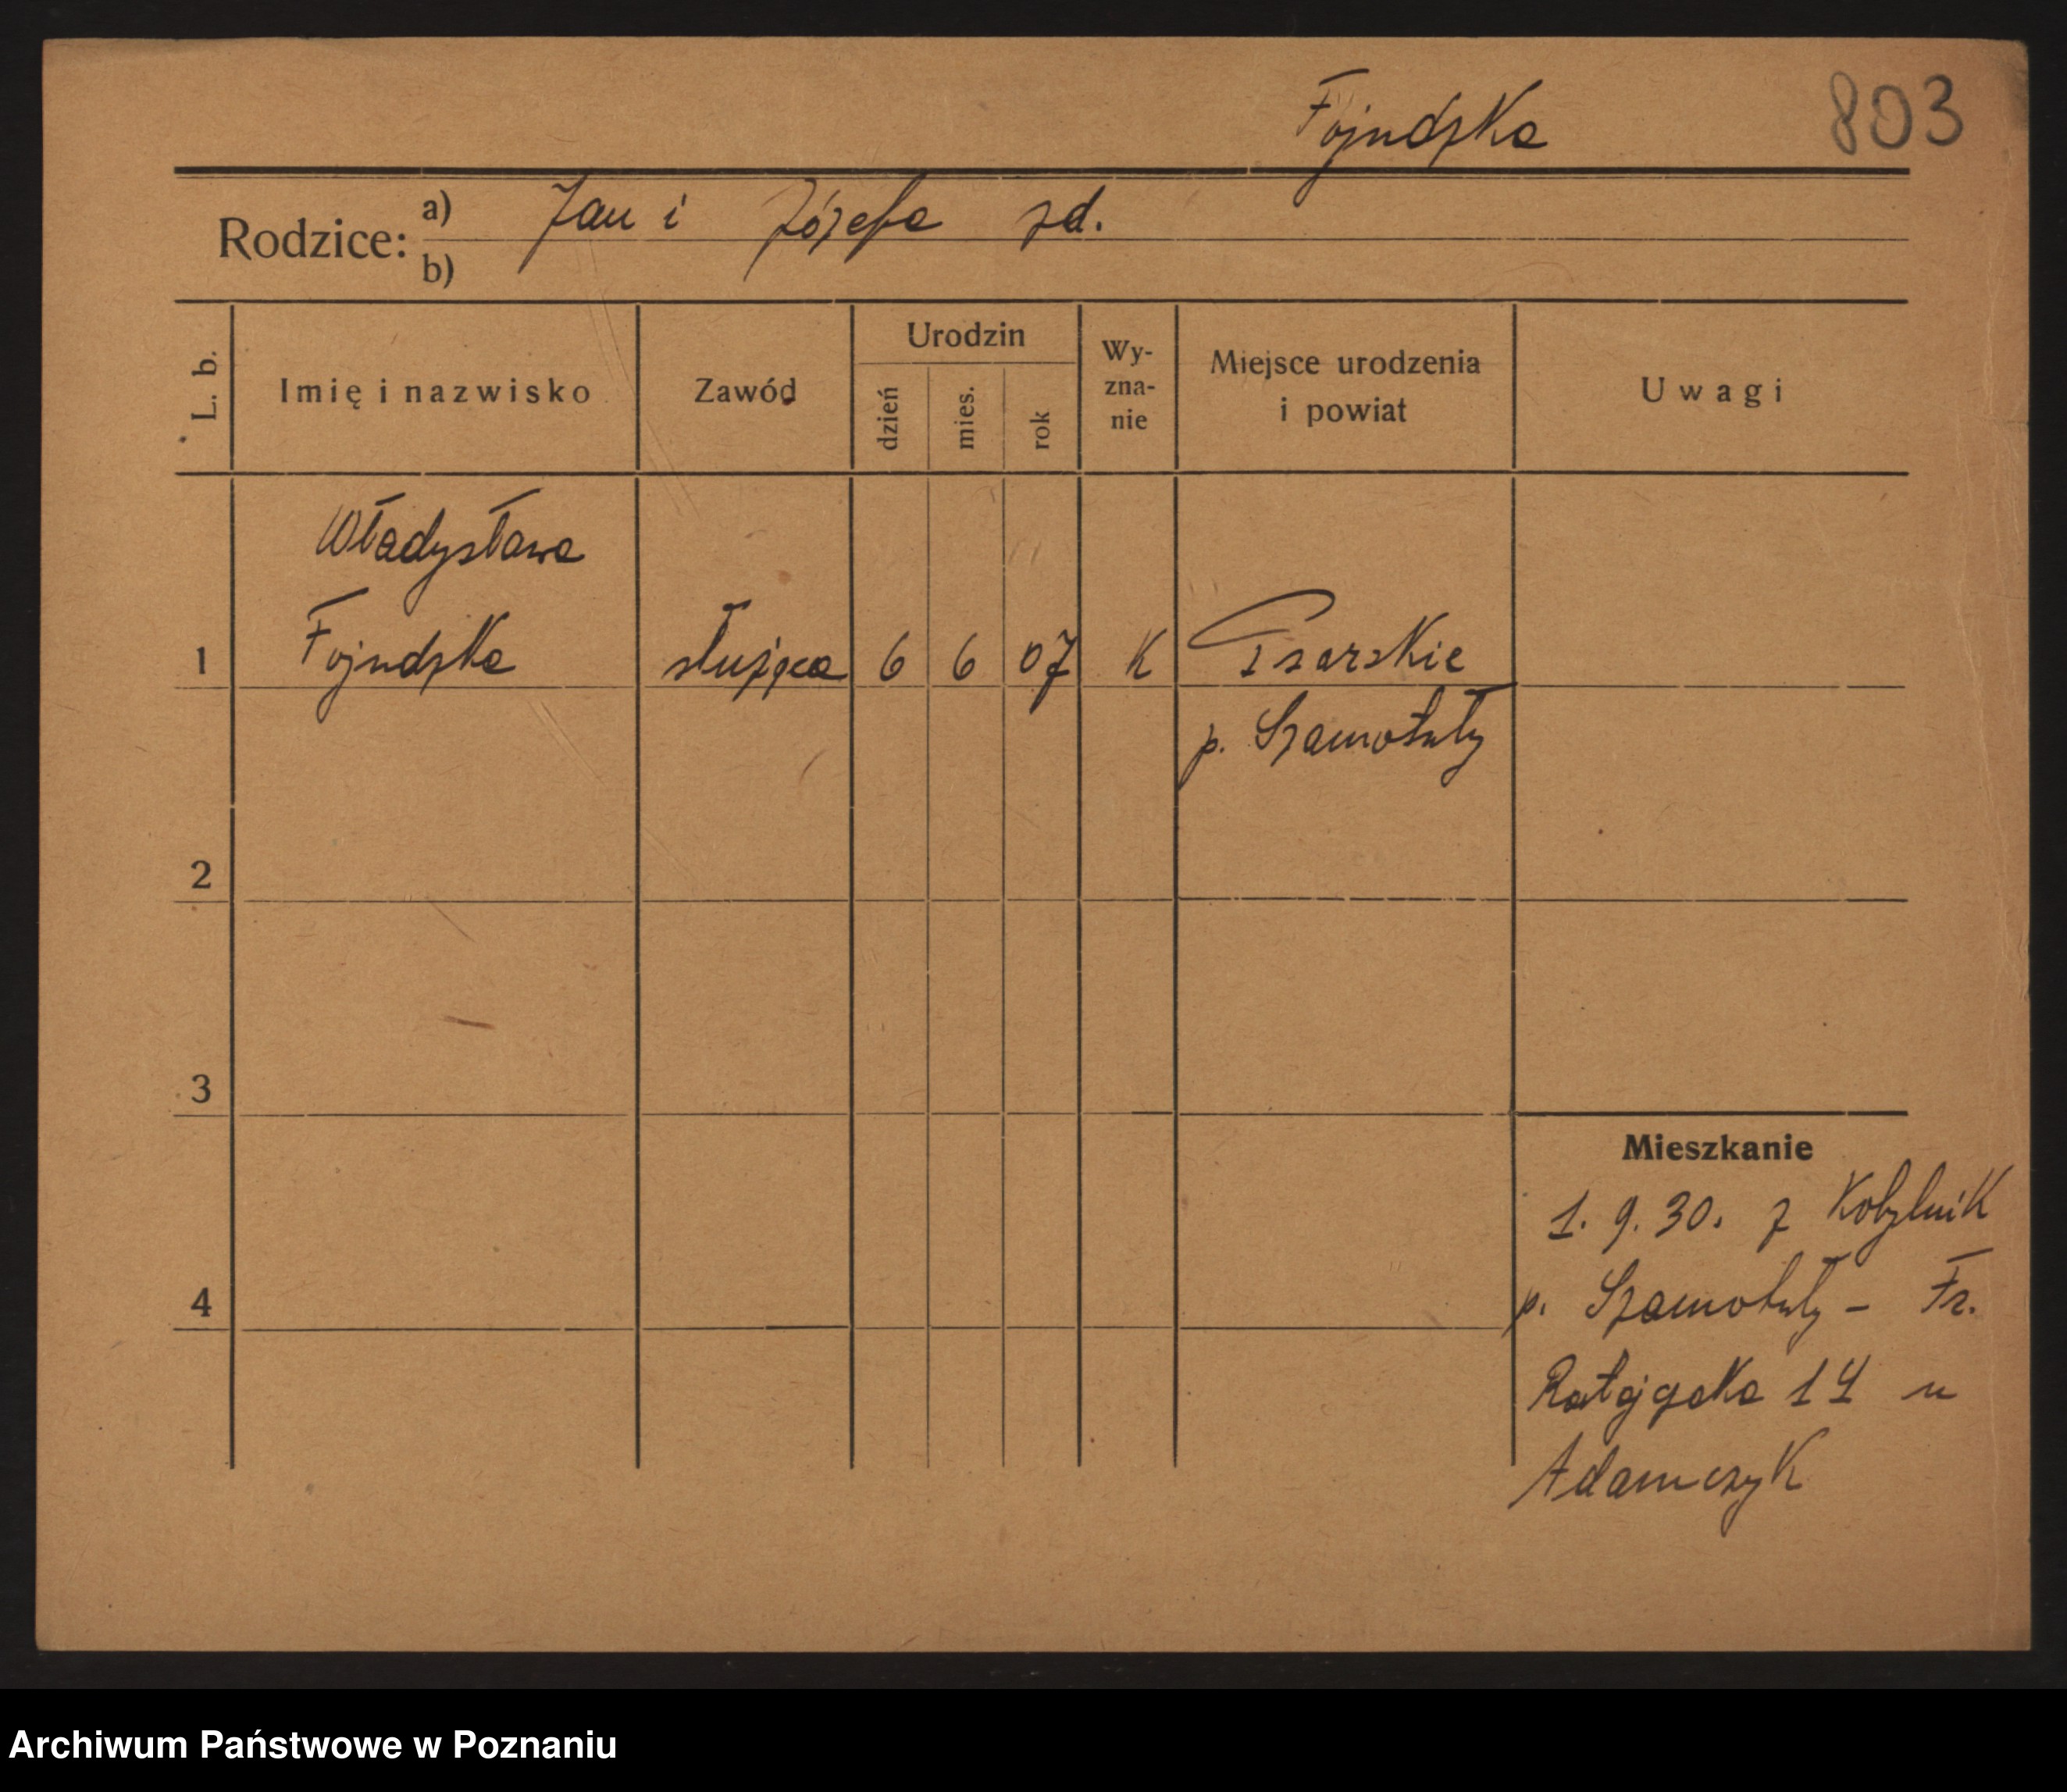 Fojudzka 803
Rodzice: a) Jan i Józefa zd.
b)
L. b. Imię i nazwisko Zawód Urodzin dzień mies. rok Wy-zna-nie Miejsce urodzenia i powiat Uwagi
Władysława
1 Fojudzka służąca 6 6 07 K Psarskie
p. Szamotuły
2
3
Mieszkanie
1. 9. 30. z Kobylnik
4 p. Szamotuły – Fr.
Ratajczaka 14 u
Adamczyk
Archiwum Państwowe w Poznaniu